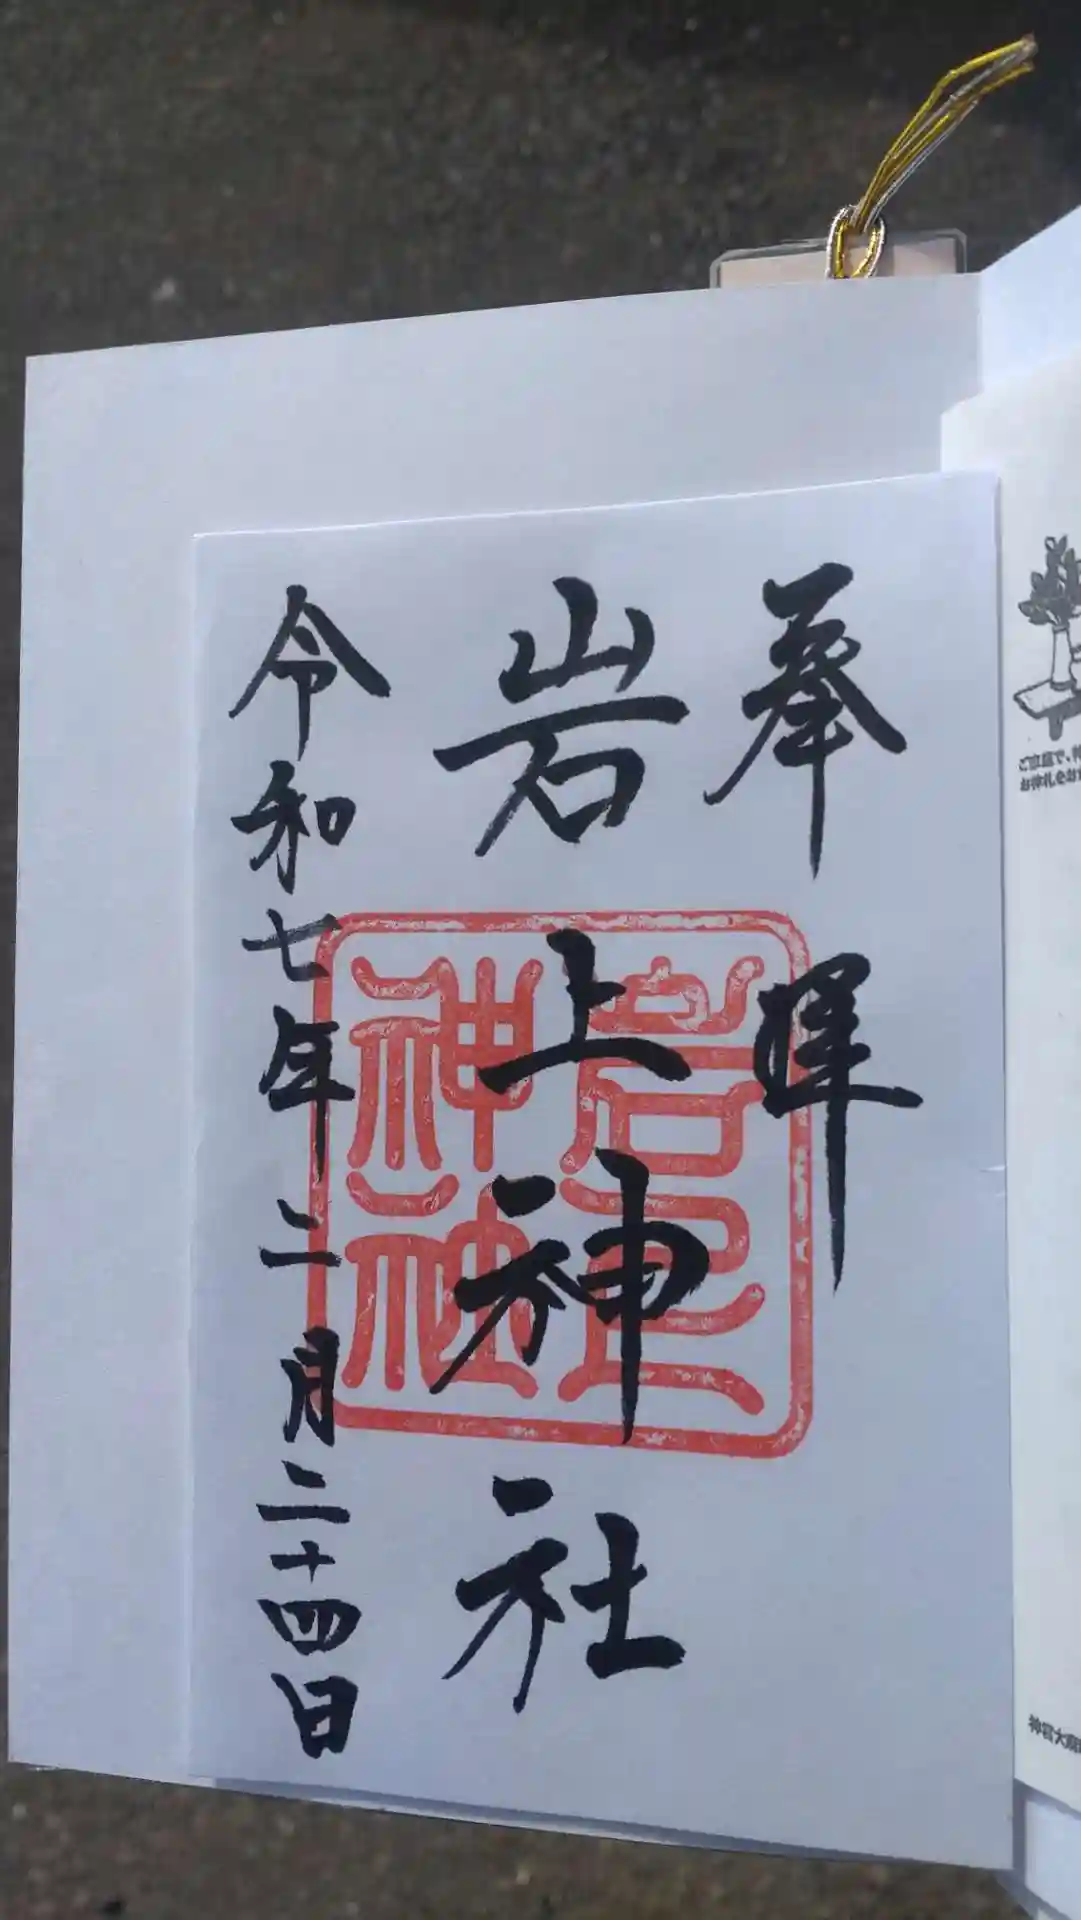 奉拝
岩上神社
岩上神社
令和七年二月二十四日
ご家庭で、神
お神札をお
神宮大麻